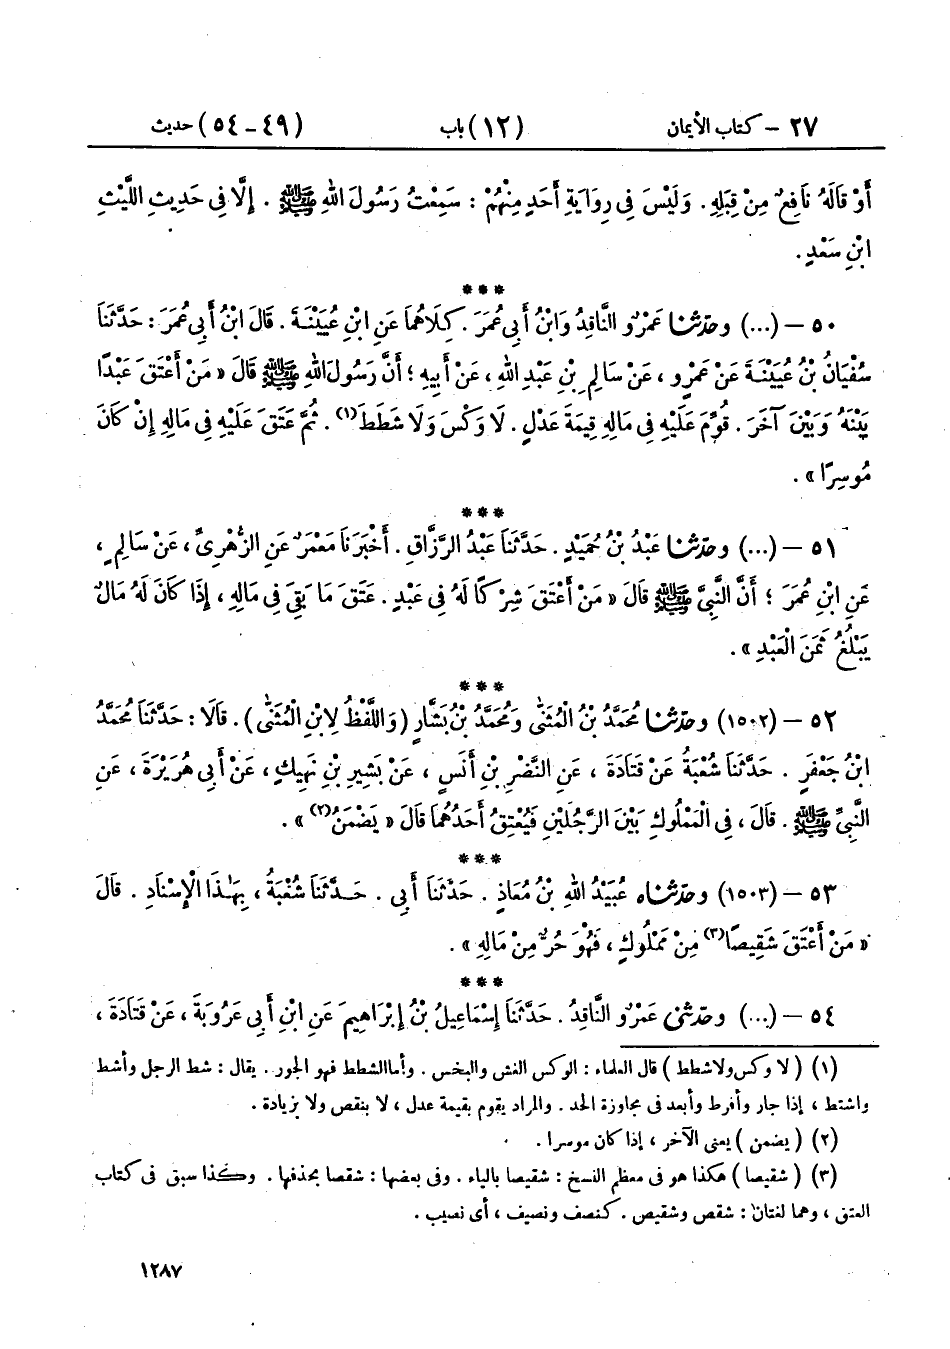 ٢٧ – كتاب الأيمان (١٢) باب (٤٩-٥٤) حديث
أَوْ قَالَهُ نَافِعٌ مِنْ قِبَلِهِ . وَلَيْسَ فِي رِوَايَةِ أَحَدٍ مِنْهُمْ : سَمِعْتُ رَسُولَ اللهِ ﷺ . إِلَّا فِي حَدِيثِ اللَّيْثِ
ابْنِ سَعْدٍ .
***
٥٠ – (...) وحدّثنا عَمْرٌو النَّاقِدُ وَابْنُ أَبِي عُمَرَ . كِلَاهُمَا عَنِ ابْنِ عُيَيْنَةَ . قَالَ ابْنُ أَبِي عُمَرَ : حَدَّثَنَا
سُفْيَانُ بْنُ عُيَيْنَةَ عَنْ عَمْرٍو ، عَنْ سَالِمِ بْنِ عَبْدِ اللهِ ، عَنْ أَبِيهِ ؛ أَنَّ رَسُولَ اللهِ ﷺ قَالَ « مَنْ أَعْتَقَ عَبْدًا
بَيْنَهُ وَبَيْنَ آخَرَ . قُوِّمَ عَلَيْهِ فِي مَالِهِ قِيمَةَ عَدْلٍ . لَا وَكْسَ وَلَا شَطَطَ(١) . ثُمَّ عَتَقَ عَلَيْهِ فِي مَالِهِ إِنْ كَانَ
مُوسِرًا » .
***
٥١ – (...) وحدّثنا عَبْدُ بْنُ حُمَيْدٍ . حَدَّثَنَا عَبْدُ الرَّزَّاقِ . أَخْبَرَنَا مَعْمَرٌ عَنِ الزُّهْرِيِّ ، عَنْ سَالِمٍ ،
عَنِ ابْنِ عُمَرَ ؛ أَنَّ النَّبِيَّ ﷺ قَالَ « مَنْ أَعْتَقَ شِرْكًا لَهُ فِي عَبْدٍ . عَتَقَ مَا بَقِيَ فِي مَالِهِ ، إِذَا كَانَ لَهُ مَالٌ
يَبْلُغُ ثَمَنَ الْعَبْدِ » .
***
٥٢ – (١٥٠٢) وحدّثنا مُحَمَّدُ بْنُ الْمُثَنَّى وَمُحَمَّدُ بْنُ بَشَّارٍ (وَاللَّفْظُ لِابْنِ الْمُثَنَّى) . قَالَا : حَدَّثَنَا مُحَمَّدُ
ابْنُ جَعْفَرٍ . حَدَّثَنَا شُعْبَةُ عَنْ قَتَادَةَ ، عَنِ النَّضْرِ بْنِ أَنَسٍ ، عَنْ بَشِيرِ بْنِ نَهِيكٍ ، عَنْ أَبِي هُرَيْرَةَ ، عَنِ
النَّبِيِّ ﷺ . قَالَ ، فِي الْمَمْلُوكِ بَيْنَ الرَّجُلَيْنِ فَيُعْتِقُ أَحَدُهُمَا قَالَ « يَضْمَنُ(٢) » .
***
٥٣ – (١٥٠٣) وحدّثناه عُبَيْدُ اللهِ بْنُ مُعَاذٍ . حَدَّثَنَا أَبِي . حَدَّثَنَا شُعْبَةُ ، بِهَٰذَا الْإِسْنَادِ . قَالَ
« مَنْ أَعْتَقَ شَقِيصًا(٣) مِنْ مَمْلُوكٍ ، فَهُوَ حُرٌّ مِنْ مَالِهِ » .
***
٥٤ – (...) وحدّثني عَمْرٌو النَّاقِدُ . حَدَّثَنَا إِسْمَاعِيلُ بْنُ إِبْرَاهِيمَ عَنِ ابْنِ أَبِي عَرُوبَةَ ، عَنْ قَتَادَةَ ،
(١) ( لا وكس ولا شطط ) قال العلماء : الوكس الغش والبخس . وأما الشطط فهو الجور . يقال : شط الرجل وأشط
واشتط ، إذا جار وأفرط وأبعد في مجاوزة الحد . والمراد يقوم بقيمة عدل ، لا بنقص ولا بزيادة .
(٢) ( يضمن ) يعني الآخر ، إذا كان موسرا .
(٣) ( شقيصا ) هكذا هو في معظم النسخ : شقيصا بالياء . وفي بعضها : شقصا بحذفها . وكذا سبق في كتاب
العتق ، وهما لغتان : شقص وشقيص . كنصف ونصيف ، أي نصيب .
١٢٨٧